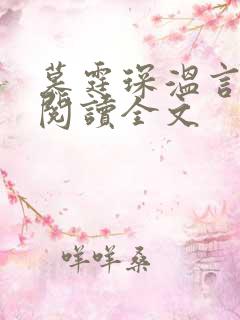 慕霆琛溫言
閱讀全文
咩咩桑